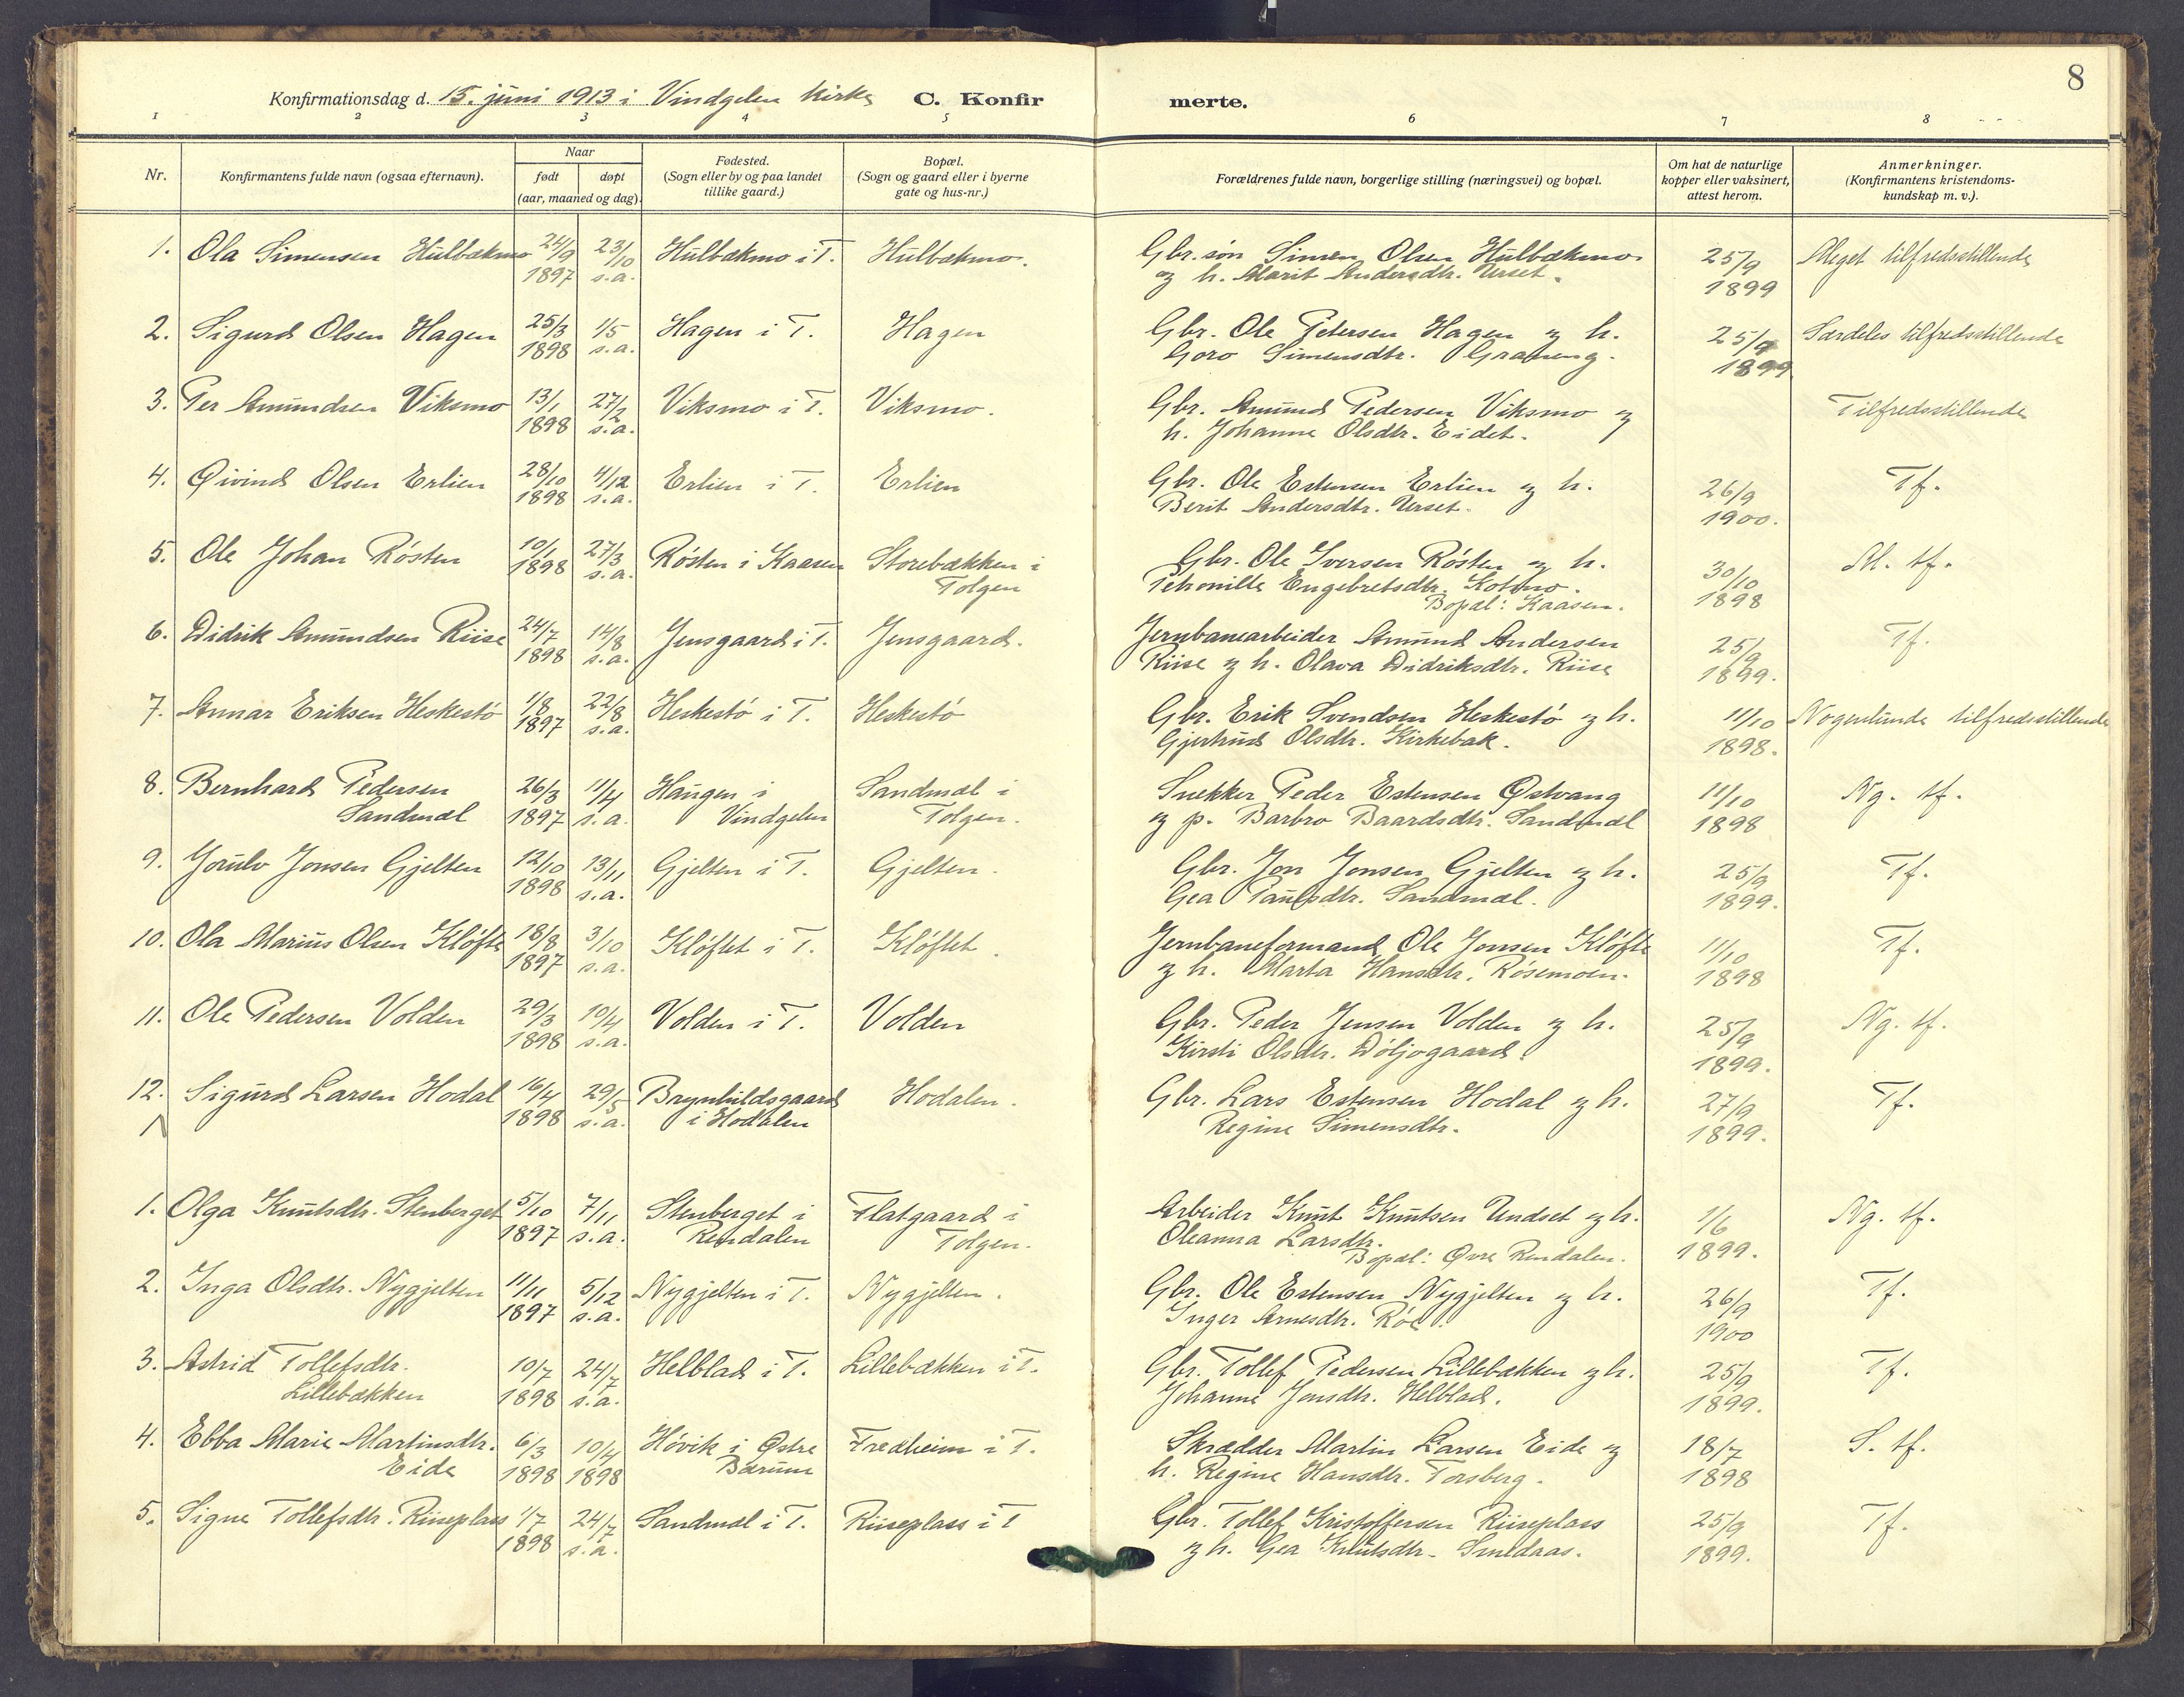 8
Konfirmationsdag d. 15. juni 1913 i Vindgelen kirke C. Konfirmerte.
1 2 3 4 5 6 7 8
Nr. Konfirmantens fulde navn (ogsaa efternavn). Naar født døpt (aar, maaned og dag). Fødested. (Sogn eller by og paa landet tillike gaard.) Bopæl. (Sogn og gaard eller i byerne gate og hus-nr.) Forældrenes fulde navn, borgerlige stilling (næringsvei) og bopæl. Om hat de naturlige kopper eller vaksinert, attest herom. Anmerkninger. (Konfirmantens kristendoms-kundskap m. v.).
1. Ola Simensen Hulbækmo 24/9 23/10 Hulbækmo i T. Hulbækmo. Gbr. søn Simen Olsen Hulbækmo 25/9 Meget tilfredsstillende
1897 s.a. og h. Marit Andersdtr. Urset. 1899
2. Sigurd Olsen Hagen 25/3 1/5 Hagen i T. Hagen Gbr. Ole Petersen Hagen og h. 25/9 Særdeles tilfredsstillende
1898 s.a. Goro Simensdtr. 1899
3. Per Amundsen Viksmo 13/1 27/2 Viksmo i T. Viksmo. Gbr. Amund Pedersen Viksmo og Tilfredsstillende
1898 s.a. h. Johanne Olsdtr. Eidet.
4. Øivind Olsen Erlien 28/10 4/12 Erlien i T. Erlien Gbr. Ole Estensen Erlien og h. 26/9 Tf.
1898 s.a. Berit Andersdtr. Urset. 1900.
5. Ole Johan Røsten 10/1 27/3 Røsten i Kaasen Storebækken i Gbr. Ole Iversen Røsten og h. 30/10 M. tf.
1898 s.a. Tolgen Petronille Engebretsdtr. Kotmo. 1898
Bopæl: Kaasen.
6. Didrik Amundsen Riise 24/7 14/8 Jensgaard i T. Jensgaard. Jernbanearbeider Amund Andersen 25/9 Tf.
1898 s.a. Riise og h. Olava Didriksdtr. Riise 1899.
7. Annar Eriksen Heskestø 1/8 22/8 Heskestø i T. Heskestø Gbr. Erik Svendsen Heskestø og h. 11/10 Nogenlunde tilfredsstillende
1897 s.a. Gjertrud Olsdtr. Kirkebak. 1898.
8. Bernhard Pedersen 26/3 11/4 Haugen i Sandmæl i Snekker Peder Estensen Østvang 11/10 Ng. tf.
Sandmæl 1897 s.a. Vindgelen Tolgen. og p. Barbro Baardsdtr. Sandmæl 1898
9. Jorulv Jonsen Gjelten 12/10 13/11 Gjelten i T. Gjelten. Gbr. Jon Jonsen Gjelten og h. 25/9 Tf.
1898 s.a. Gea Paulsdtr. Sandmæl. 1899.
10. Ola Marius Olsen Kløfte 18/8 3/10 Kløftet i T. Kløftet. Jernbaneformand Ole Jonsen Kløfte 11/10 Tf.
1897 s.a. og h. Marta Hansdtr. Røsemoen. 1898
11. Ole Pedersen Volden 29/3 10/4 Volden i T. Volden Gbr. Peder Jensen Volden og h. 25/9 Ng. tf.
1898 s.a. Kirsti Olsdtr. Døljogaard. 1899.
12. Sigurd Larsen Hodal 16/4 29/5 Brynhildsgaard Hodalen. Gbr. Lars Estensen Hodal og h. 27/9 Tf.
1898 s.a. i Hodalen Regine Simensdtr. 1899.
1. Olga Knutsdtr. Stenberget 5/10 7/11 Stenberget i Flatgaard i Arbeider Knut Knutsen Undset og h. 1/6 Ng. tf.
1897 s.a. Rendalen Tolgen. Oleanna Larsdtr. 1899.
Bopæl: Øvre Rendalen.
2. Inga Olsdtr. Nygjelten 11/11 5/12 Nygjelten i T. Nygjelten. Gbr. Ole Estensen Nygjelten og h. 26/9 Tf.
1897 s.a. Inger Arnesdtr. Røe. 1900
3. Astrid Tollefsdtr. 10/7 24/7 Helblad i T. Lillebækken i T. Gbr. Tollef Pedersen Lillebækken og h. 25/9 Tf.
Lillebækken 1898 s.a. Johanne Jonsdtr. Helblad. 1899.
4. Ebba Marie Martinsdtr. 6/3 10/4 Høvik i Østre Fredheim i T. Skrædder Martin Larsen Eide og 18/7 S. tf.
Eide 1898 1898 Bærum h. Regine Hansdtr. Torsberg. 1898
5. Signe Tollefsdtr. Riiseplass 1/7 24/7 Sandmæl i T. Riiseplass i T Gbr. Tollef Kristoffersen Riiseplass 25/9 Tf.
1898 s.a. og h. Gea Knutsdtr. Smedaas. 1899.